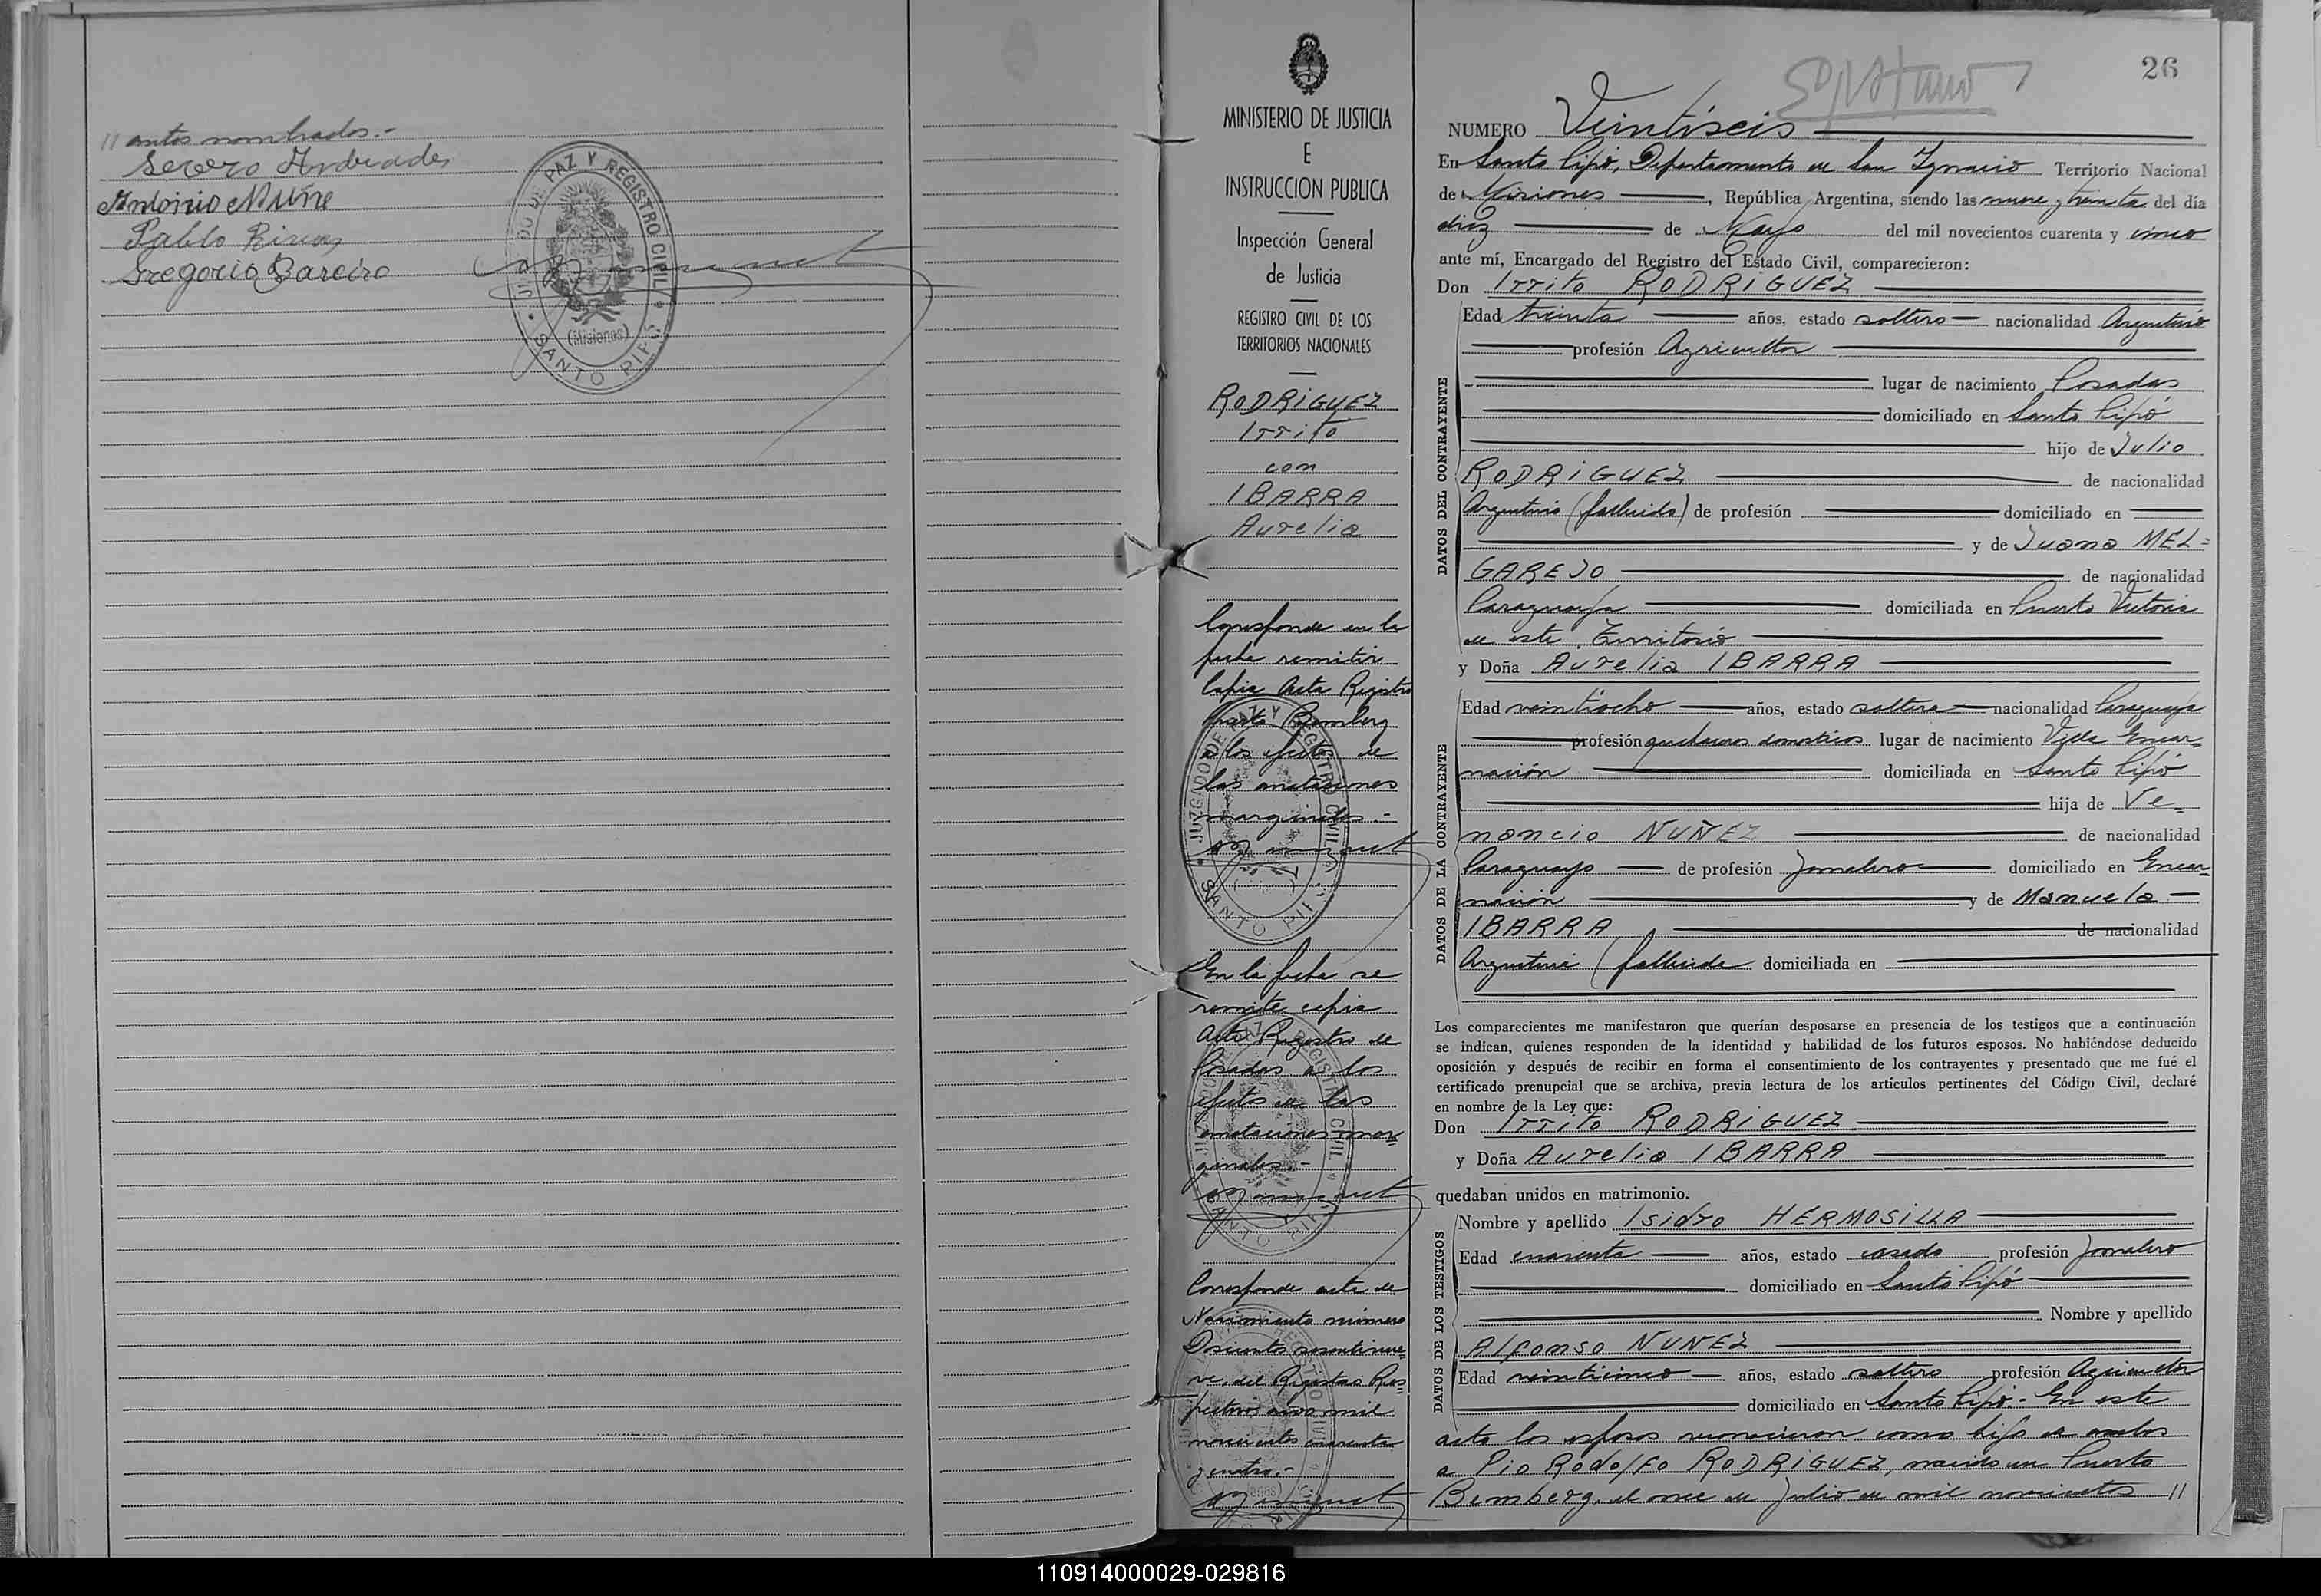 // antes nombrados.-
Severo Andrades
Antonio Nuñe
Pablo
Gregorio Bareiro
JUZGADO DE PAZ Y REGISTRO CIVIL
(Misiones)
SANTO PIPÓ
MINISTERIO DE JUSTICIA
E
INSTRUCCION PUBLICA
Inspección General
de Justicia
REGISTRO CIVIL DE LOS
TERRITORIOS NACIONALES
RODRIGUEZ
Irrito
con
IBARRA
Aurelia
Corresponde en la
fecha remitir
Copia Acta Registro
Puerto Bemberg
a los efectos de
las anotaciones
marginales.-
JUZGADO DE PAZ Y REGISTRO CIVIL
SANTO PIPÓ
En la fecha se
remite copia
Acta Registro de
Posadas a los
efectos de las
anotaciones mar=
ginales.-
Corresponde acta de
Nacimiento número
Doscientos sesentinue=
ve, del Registro Res=
pectivo año mil
novecientos cuarenta
y cuatro.-
26
NUMERO Veintiseis
En Santo Pipó, Departamento de San Ignacio Territorio Nacional
de Misiones, República Argentina, siendo las nueve y treinta del día
diez de Mayo del mil novecientos cuarenta y cinco
ante mí, Encargado del Registro del Estado Civil, comparecieron:
Don Irrito RODRIGUEZ
DATOS DEL CONTRAYENTE
Edad treinta años, estado soltero nacionalidad Argentino
profesión Agricultor
lugar de nacimiento Posadas
domiciliado en Santo Pipó
hijo de Julio
RODRIGUEZ de nacionalidad
Argentino (fallecido) de profesión domiciliado en
y de Juana MEL=
GAREJO de nacionalidad
Paraguaya domiciliada en Puerto Victoria
de este Territorio
y Doña Aurelia IBARRA
DATOS DE LA CONTRAYENTE
Edad veintiocho años, estado soltera nacionalidad Paraguaya
profesión quehaceres domesticos lugar de nacimiento Villa Encar=
nación domiciliada en Santo Pipó
hija de Ve=
nancio NUÑEZ de nacionalidad
Paraguayo de profesión Jornalero domiciliado en Encar=
nación y de Manuela
IBARRA de nacionalidad
Argentina (fallecida domiciliada en
Los comparecientes me manifestaron que querían desposarse en presencia de los testigos que a continuación
se indican, quienes responden de la identidad y habilidad de los futuros esposos. No habiéndose deducido
oposición y después de recibir en forma el consentimiento de los contrayentes y presentado que me fué el
certificado prenupcial que se archiva, previa lectura de los artículos pertinentes del Código Civil, declaré
en nombre de la Ley que:
Don Irrito RODRIGUEZ
y Doña Aurelia IBARRA
quedaban unidos en matrimonio.
DATOS DE LOS TESTIGOS
Nombre y apellido Isidro HERMOSILLA
Edad cuarenta años, estado casado profesión Jornalero
domiciliado en Santo Pipó
Nombre y apellido
Alfonso NUNEZ
Edad veinticinco años, estado soltero profesión Agricultor
domiciliado en Santo Pipó.- En este
acto los esposos reconocieron como hijo de ambos
a Pio Rodolfo RODRIGUEZ, nacido en Puerto
Bemberg, el once de Julio de mil novecientos //
110914000029-029816